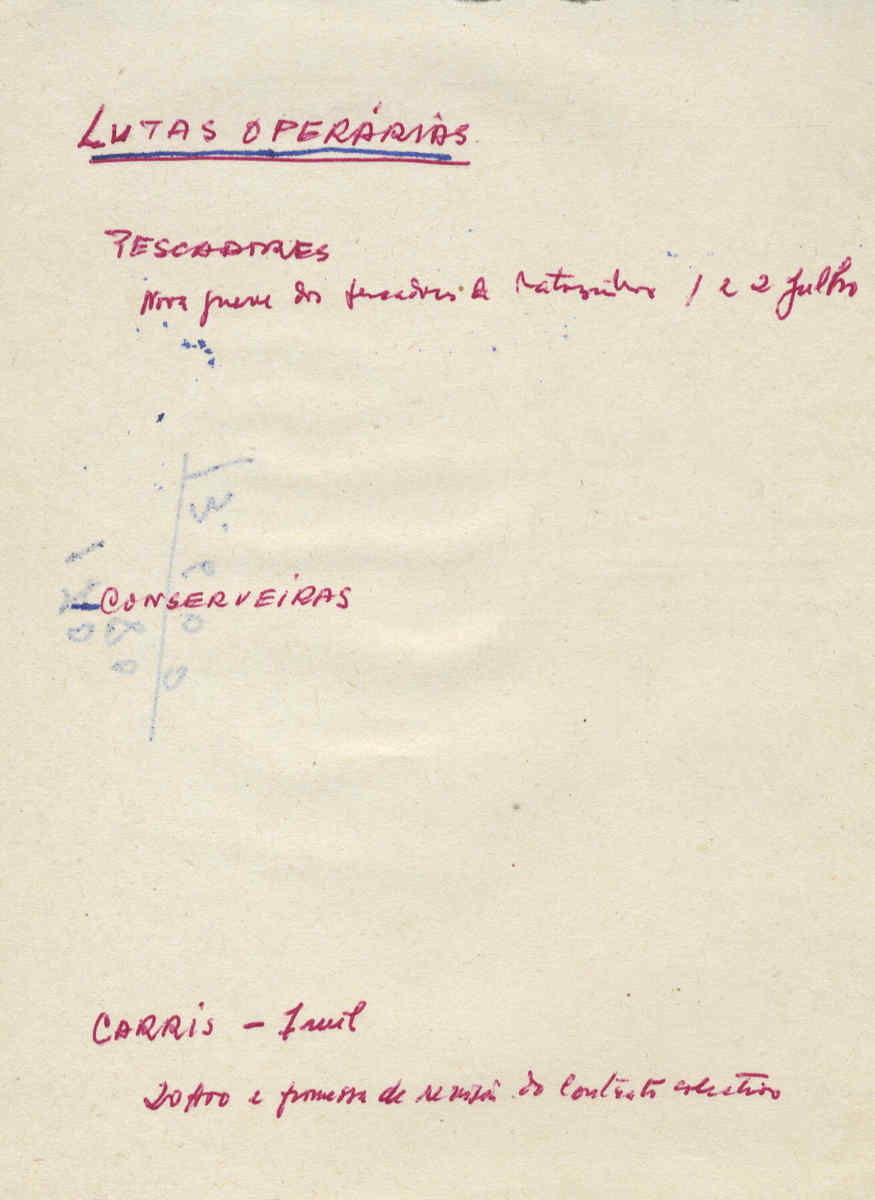 LUTAS OPERÁRIAS
PESCADORES
Nova greve dos pescadores de Matosinhos 1 e 2 Julho
CONSERVEIRAS
CARRIS -
e promessa de revisão do contrato colectivo